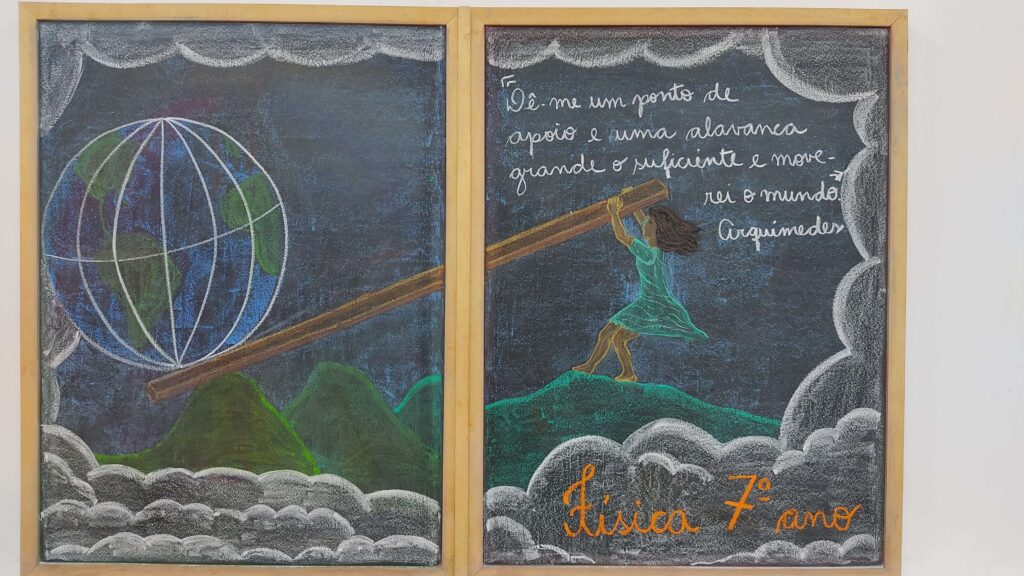 "Dê-me um ponto de
apoio e uma alavanca
grande o suficiente e move-
rei o mundo."
Arquimedes
Física 7º ano